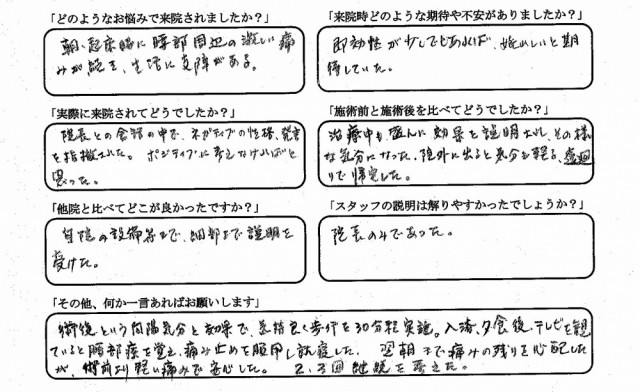 「どのようなお悩みで来院されましたか？」
朝、起床時に腰部周辺の激しい痛
みが続き、生活に支障がある。
「来院時どのような期待や不安がありましたか？」
即効性が少しでもあれば、嬉しいと期
待していた。
「実際に来院されてどうでしたか？」
院長との会話の中で、ネガティブの性格、発言
を指摘された。ポジティブに考えなければと
思った。
「施術前と施術後を比べてどうでしたか？」
治療中も盛んに効果を説明され、その様
な気分になった。院外に出ると気分も軽る、遠廻
りで帰宅した。
「他院と比べてどこが良かったですか？」
自院の設備等まで、細部まで説明を
受けた。
「スタッフの説明は解りやすかったでしょうか？」
院長のみであった。
「その他、何か一言あればお願いします」
術後という高陽気分と効果で、気持良く歩行を30分程実施。入浴、夕食後、テレビを観
ていると腰部痛を覚え、痛み止めを服用し就寝した。翌朝まで痛みの残りを心配した
が、術前より軽い痛みで安心した。2、3回継続を考えた。